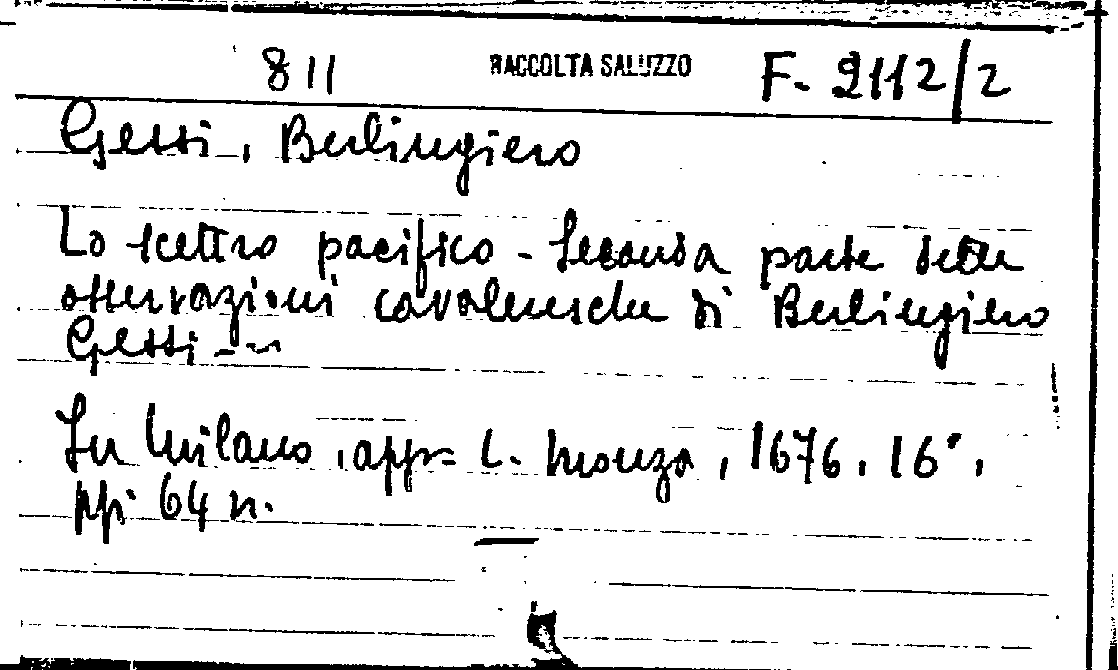 811 RACCOLTA SALUZZO F. 2112/2
Gessi, Berlingiero
Lo scettro pacifico - Seconda parte delle
osservazioni cavaleresche di Berlingiero
Gessi ---
In Milano, appr= L. Monza, 1676. 16°,
pp. 64 n.